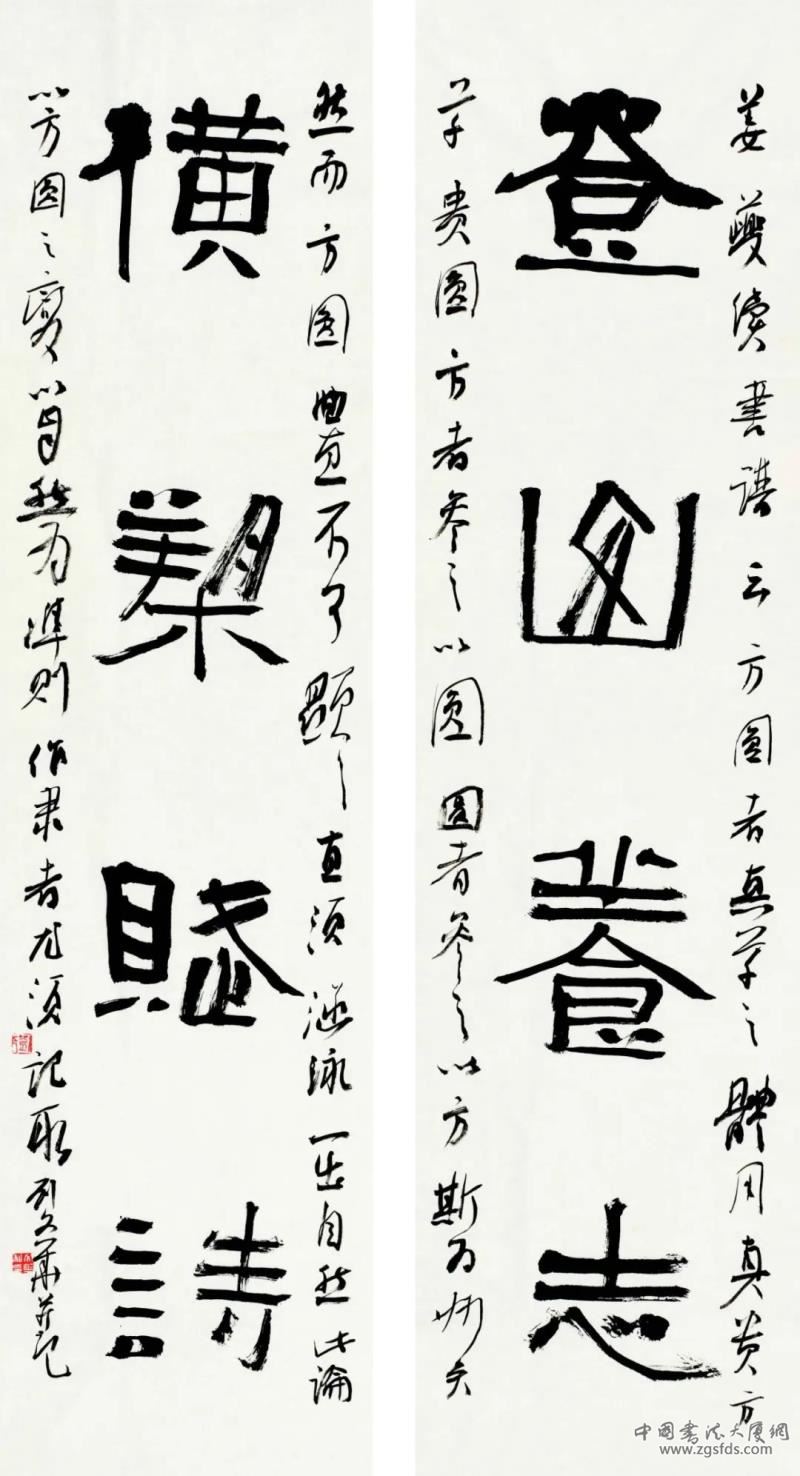 姜夔續書譜云方圓者真草之體用真貴方
登山養志
草貴圓方者參之以圓圓者參之以方斯為妙矣
然而方圓曲直不可顯直須涵泳一出自然此論
橫槊賦詩
以方圓之變以自然為準則作隸者尤須記取劉文華並記
中國書法大廈網
www.zgsfds.com